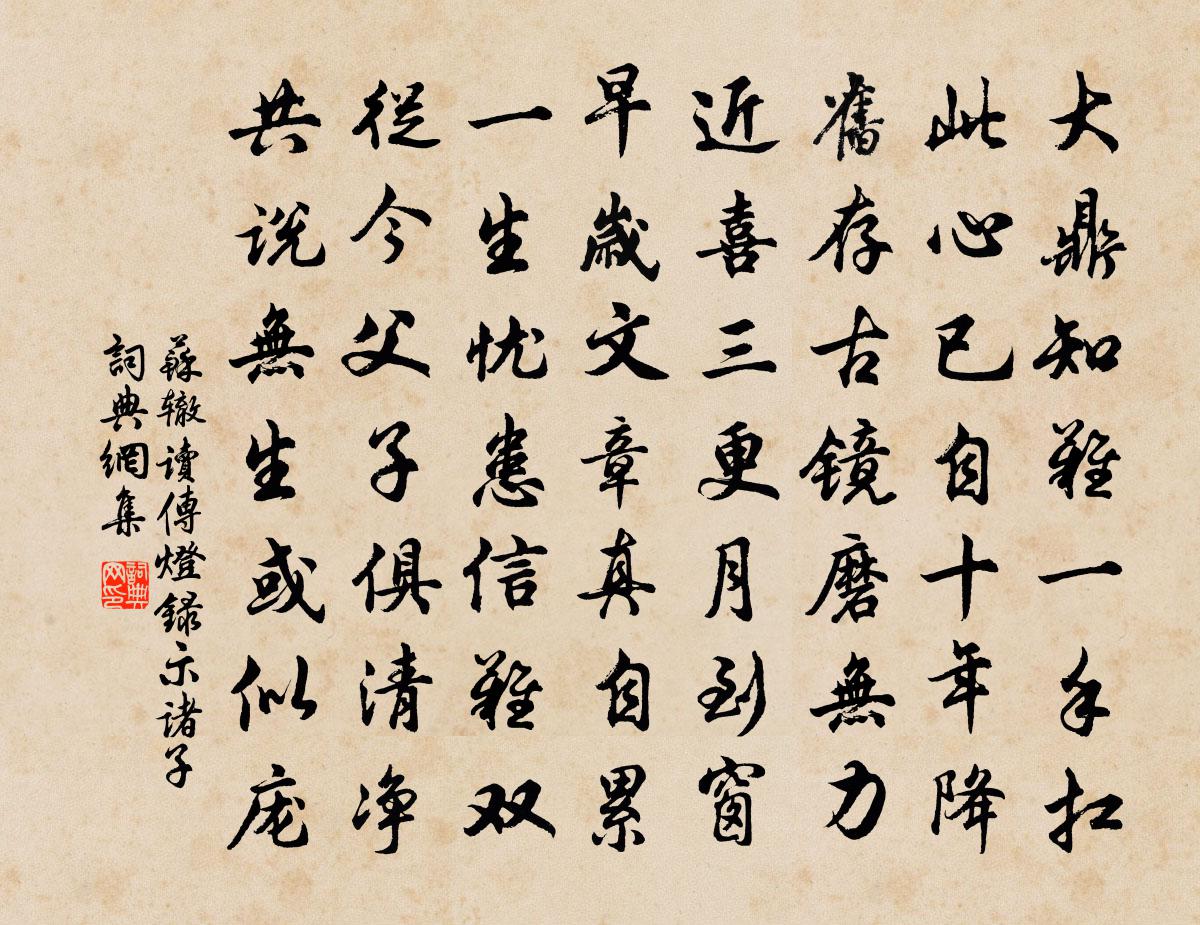 大鼎知難一手扛
此心已自十年降
舊存古镜磨無力
近喜三更月到窗
早歲文章真自累
一生忧患信難双
從今父子俱清净
共说無生或似庞
蘇辙讀傳燈録示诸子
詞典網集
詞典网印